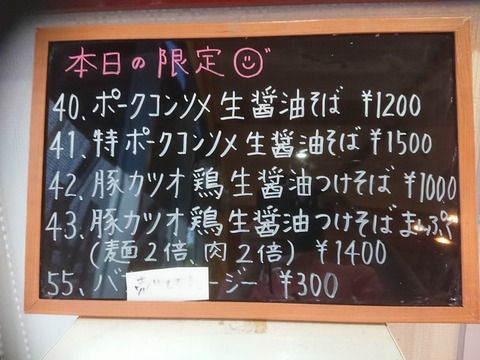 本日の限定
40、ポークコンソメ生醤油そば ¥1200
41、特ポークコンソメ生醤油そば ¥1500
42、豚カツオ鶏生醤油つけそば ¥1000
43、豚カツオ鶏生醤油つけそばまぃぷぺ
(麺2倍、肉2倍) ¥1400
55、バ ージー ¥300